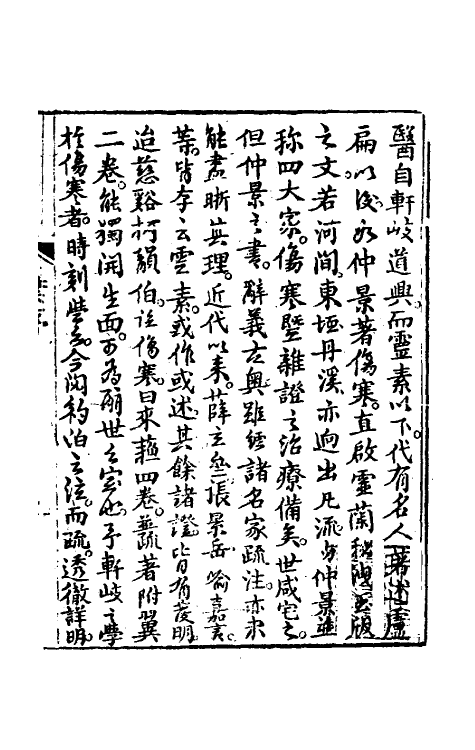 醫自軒岐道興。而靈素以下。代有名人著述。盧
扁以後。而仲景著傷寒。直啟靈蘭秘。洩玉版
之文。若河間。東垣。丹溪。亦迥出凡流。與仲景並
称四大家。傷寒暨雜證之治療備矣。世咸宅之。
但仲景之書。辭義古奧。雖經諸名家疏注。亦未
能盡晰其理。近代以来。薛立齋。張景岳。喻嘉言。
等。皆本之靈素。或作或述。其餘諸證。皆有發明。
迨慈谿柯韻伯。註傷寒曰來蘓四卷。蓋疏著附翼
二卷。能獨開生面。可為醫世之宗也。予軒岐之學
於傷寒者。時刻營營。今閱韵伯之注。而疏。透徹詳明